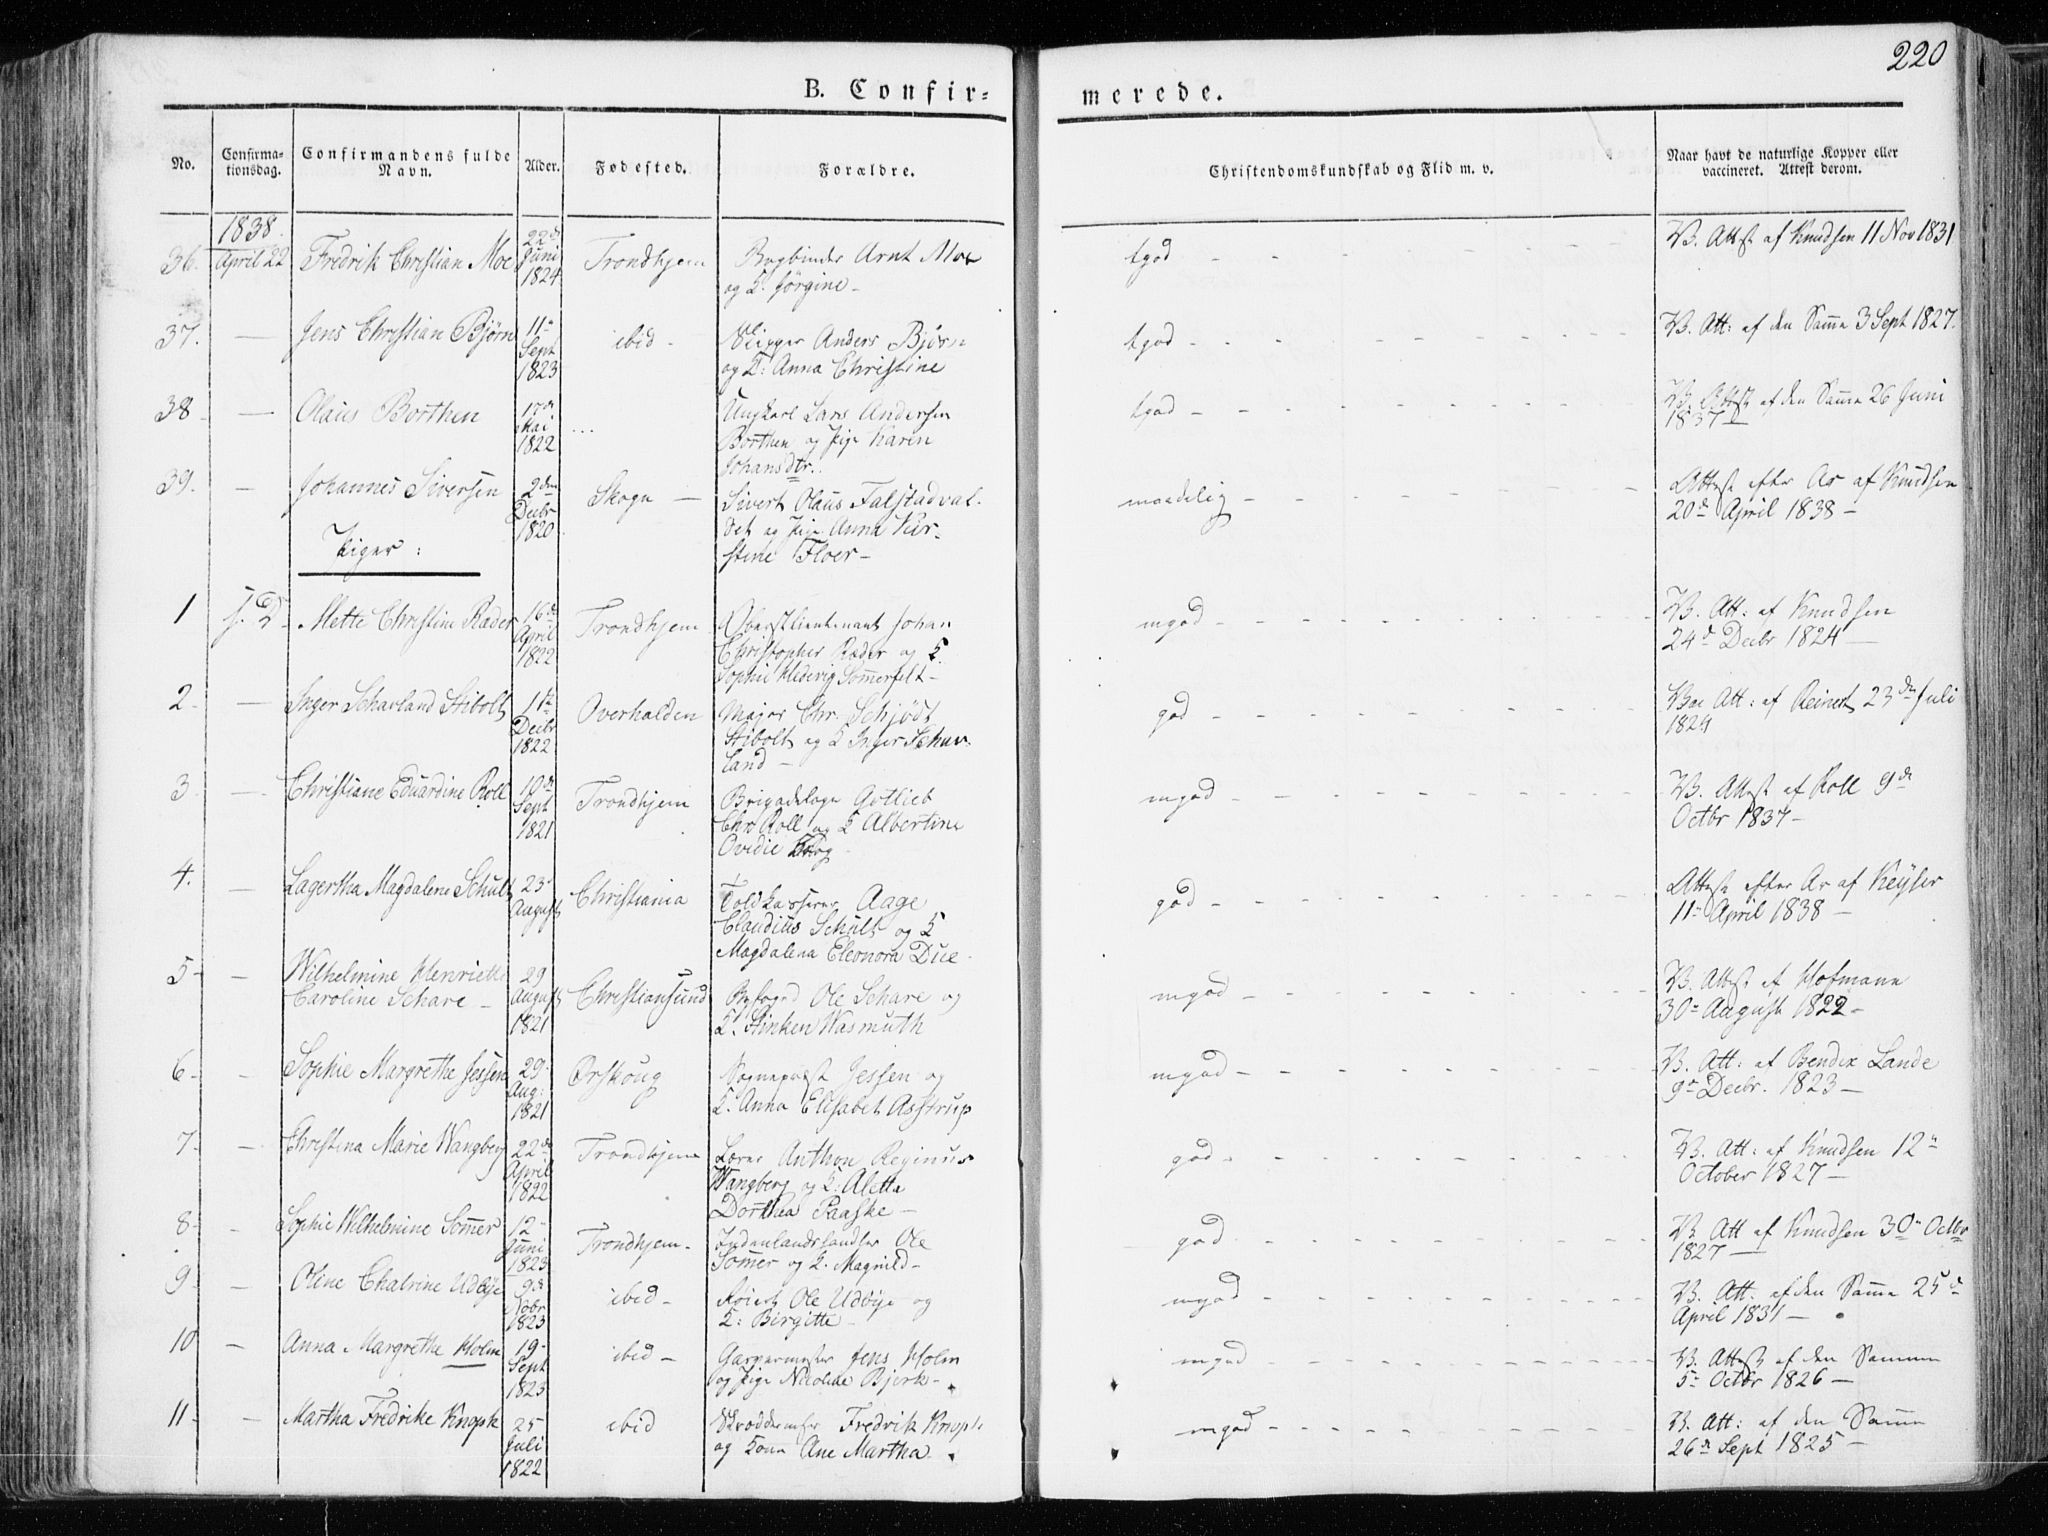 220
B. Confir=
merede.
No.
Confirma=
tionsdag.
Confirmandens fulde
Navn.
Alder.
Fødested.
Forældre.
Christendomskundskab og Flid m. v.
Naar havt de naturlige Kopper eller
vaccineret. Attest derom.
1838.
36. April 22 Fredrik Christian Moe 22d Juni 1824 Trondhjem Bogbinder Arnt Moe
og H. Jørgine - tgod V. Attst af Knudsen 11 Nov 1831
37. - Jens Christian Bjørn 11te Sept 1823 ibid - Anders Bjørn
og H: Anna Christine tgod V. Att: af den Samme 3 Sept 1827.
38 - Olaus Borthen 17de Mai 1822 ... Ungkarl Lars Andersen
Borthen og Pige Karen
Johansdtr. tgod V. Attst af den Samme 26 Juni
1837
39. - Johannes Siversen 2den Decbr 1820 Skogn - Sivert Olaus Falstadval-
det og Pige Anna Kir-
stine Floer - maadelig Attest efter Ar af Knudsen
20de April 1838 -
Piger:
1 s. D. Mette Christine Ræder 16de April 1822 Trondhjem Oberstlieutenant Johan
Christopher Ræder og H.
Sophie Hedevig Sommerfelt - mgod V. Att: af Knudsen
24de Decbr 1824 -
2 - Inger Scharland Stibolt 11te Decbr 1822 Overhalden Major Chr. Schjødt
Stibolt og H Inger Schar-
land - god Vac Att: af Reinert 23de Juli
1824
3 - Christiane Eduardine Roll 10de Sept 1821 Trondhjem Brigadelæge Gotlieb
Chr Roll og H Albertine
Ovidie mgod V. Attest af Roll 9de
Octbr 1837 -
4. - Lagertha Magdalene Schult 23de August Christiania Toldkasserer Aage
Claudius Schult og H
Magdalena Eleonora Due - god Attest efter Ar af Keyser
11te April 1838 -
5 - Wilhelmine Henriette
Caroline Schare - 29 August 1821 Christiansund Byfoged Ole Schare og
H. Stinken Wasmuth mgod V. Attest af Hofmann
30te August 1822 -
6 - Sophie Margrethe Jessen 29 Aug: 1821 Ørskoug Sognepræst Jessen og
H. Anna Elisabet Astrup mgod V. Att: af Bendix Lande
9de Decbr. 1823 -
7 - Christina Marie Wangberg 22de April 1822 Trondhjem Lærer Anthon Reginus
Wangberg og H: Aletta
Dorthea Paaske - god V. Att: af Knudsen 12te
October 1827 -
8 - Sophie Wilhelmine Sommer 12 Juni 1823 Trondhjem - Indenlandshandler Ole
Sommer og H. Magnild - god V. Att af Knudsen 30te Octbr
1827 -
9 - Oline Chatrine Udbye 9de Nobr 1823 ibid - Ole Udbye og
H: Birgitte - mgod V. Att. af den Samme 25de
April 1831 -
10 - Anna Margrethe Holm 19 Sept 1823 ibid - Garvermester Jens Holm
og Pige Nicoline Bjerk - mgod V. Attest af den Samme
5te Octbr 1826 -
11 - Martha Fredrike Knoph 25 Juli 1822 ibid Fredrik Knoph
og Kone Ane Martha mgod V. Att: af den Samme
26de Sept 1825 -